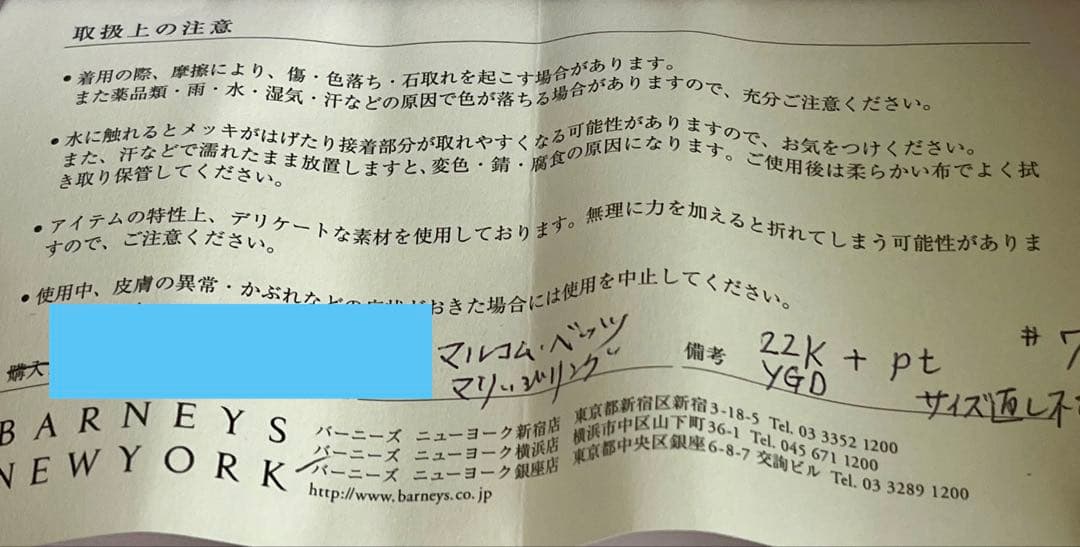 取扱上の注意
●着用の際、摩擦により、傷・色落ち・石取れを起こす場合があります。
また薬品類・雨・水・湿気・汗などの原因で色が落ちる場合がありますので、充分ご注意ください。
●水に触れるとメッキがはげたり接着部分が取れやすくなる可能性がありますので、お気をつけください。
また、汗などで濡れたまま放置しますと、変色・錆・腐食の原因になります。ご使用後は柔らかい布でよく拭
き取り保管してください。
●アイテムの特性上、デリケートな素材を使用しております。無理に力を加えると折れてしまう可能性がありま
すので、ご注意ください。
●使用中、皮膚の異常・かぶれなどの症状がおきた場合には使用を中止してください。
購入
マルコム・ベッツ
マリッジリング
備考
22K + pt #7
YGD
サイズ直し不
BARNEYS
NEWYORK
バーニーズ ニューヨーク新宿店 東京都新宿区新宿3-18-5 Tel. 03 3352 1200
バーニーズ ニューヨーク横浜店 横浜市中区山下町36-1 Tel. 045 671 1200
バーニーズ ニューヨーク銀座店 東京都中央区銀座6-8-7 交詢ビル Tel. 03 3289 1200
http://www.barneys.co.jp